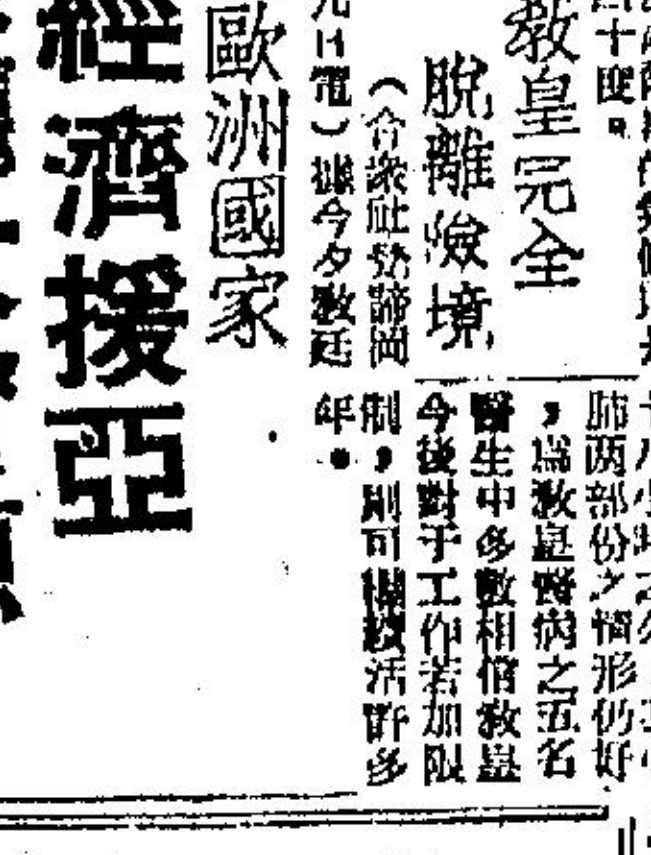 十度。
教皇完全
脫離險境
(合衆社梵諦岡
日電)據今夕教廷
肺两部份之情形仍好
，爲教皇醫病之五名
醫生中多數相信教皇
今後對于工作若加限
制，則可繼續活許多
年。
歐洲國家
經濟援亞